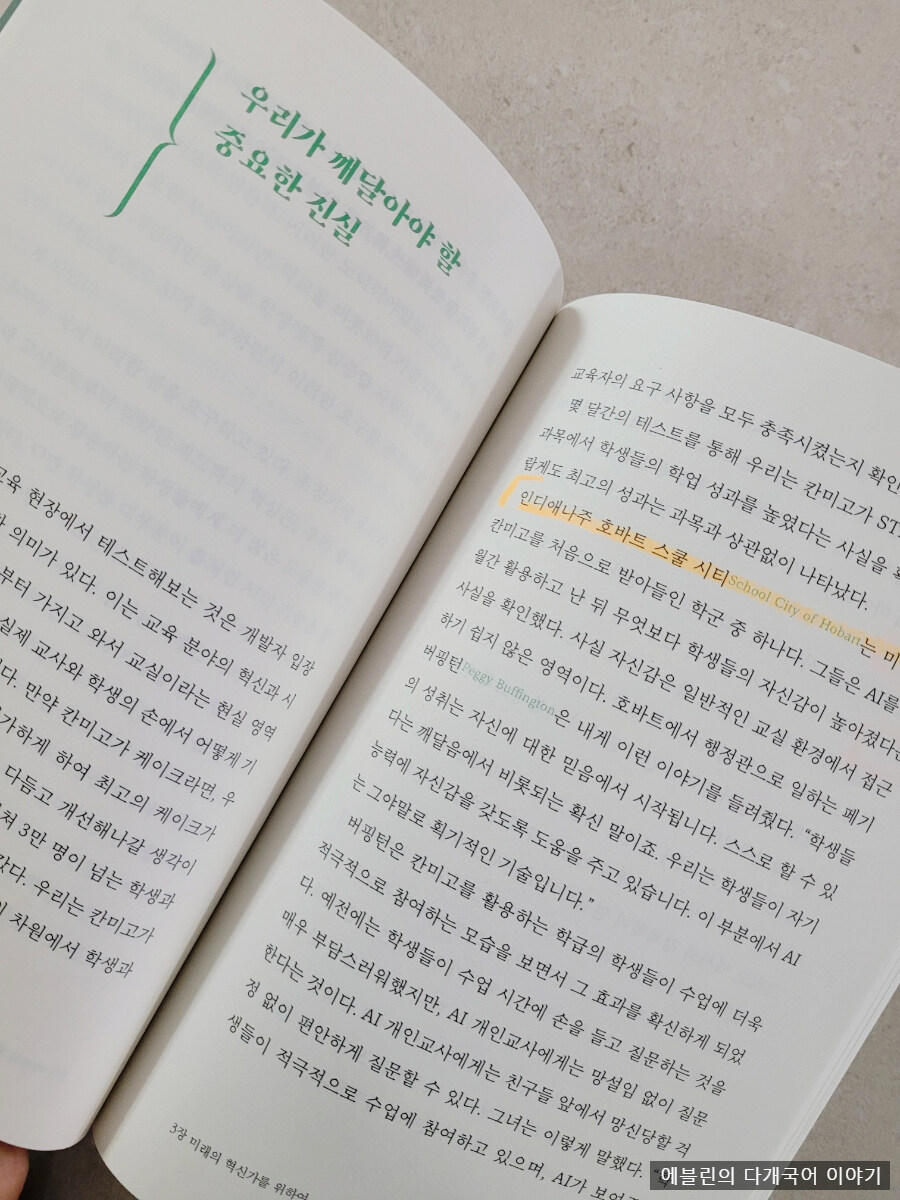 우리가 깨달아야 할
중요한 진실
교육 현장에서 테스트해보는 것은 개발자 입장
의미가 있다. 이는 교육 분야의 혁신과 시
부터 가지고 와서 교실이라는 현실 영역
실제 교사와 학생의 손에서 어떻게 기
다. 만약 칸미고가 케이크라면, 우
가하게 하여 최고의 케이크가
다듬고 개선해나갈 생각이
3만 명이 넘는 학생과
갔다. 우리는 칸미고가
차원에서 학생과
교육자의 요구 사항을 모두 충족시켰는지 확인
몇 달간의 테스트를 통해 우리는 칸미고가 ST
과목에서 학생들의 학업 성과를 높였다는 사실을
랍게도 최고의 성과는 과목과 상관없이 나타났다.
인디애나주 호바트 스쿨 시티School City of Hobart는 미
칸미고를 처음으로 받아들인 학군 중 하나다. 그들은 AI를
월간 활용하고 난 뒤 무엇보다 학생들의 자신감이 높아졌다는
사실을 확인했다. 사실 자신감은 일반적인 교실 환경에서 접근
하기 쉽지 않은 영역이다. 호바트에서 행정관으로 일하는 페기
버핑턴Peggy Buffington은 내게 이런 이야기를 들려줬다. “학생들
의 성취는 자신에 대한 믿음에서 시작됩니다. 스스로 할 수 있
다는 깨달음에서 비롯되는 확신 말이죠. 우리는 학생들이 자기
능력에 자신감을 갖도록 도움을 주고 있습니다. 이 부분에서 AI
는 그야말로 획기적인 기술입니다.”
버핑턴은 칸미고를 활용하는 학급의 학생들이 수업에 더욱
적극적으로 참여하는 모습을 보면서 그 효과를 확신하게 되었
다. 예전에는 학생들이 수업 시간에 손을 들고 질문하는 것을
매우 부담스러워했지만, AI 개인교사에게는 망설임 없이 질문
한다는 것이다. AI 개인교사에게는 친구들 앞에서 망신당할 걱
정 없이 편안하게 질문할 수 있다. 그녀는 이렇게 말했다.
생들이 적극적으로 수업에 참여하고 있으며, AI가
3장 미래의 혁신가를 위하여
에블린의 다개국어 이야기